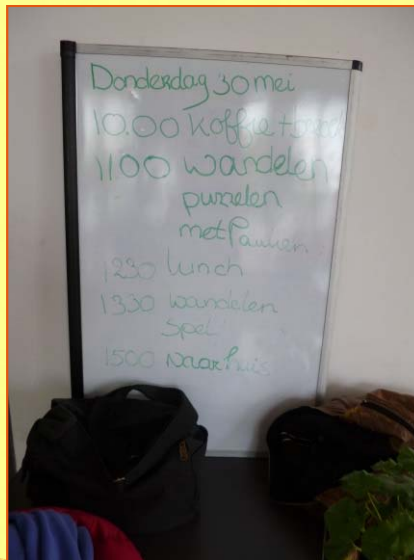 Donderdag 30 mei
10.00 koffie +
1100 wandelen
puzzelen
met Paulien
1230 lunch
1330 wandelen
spel
1500 Naar huis